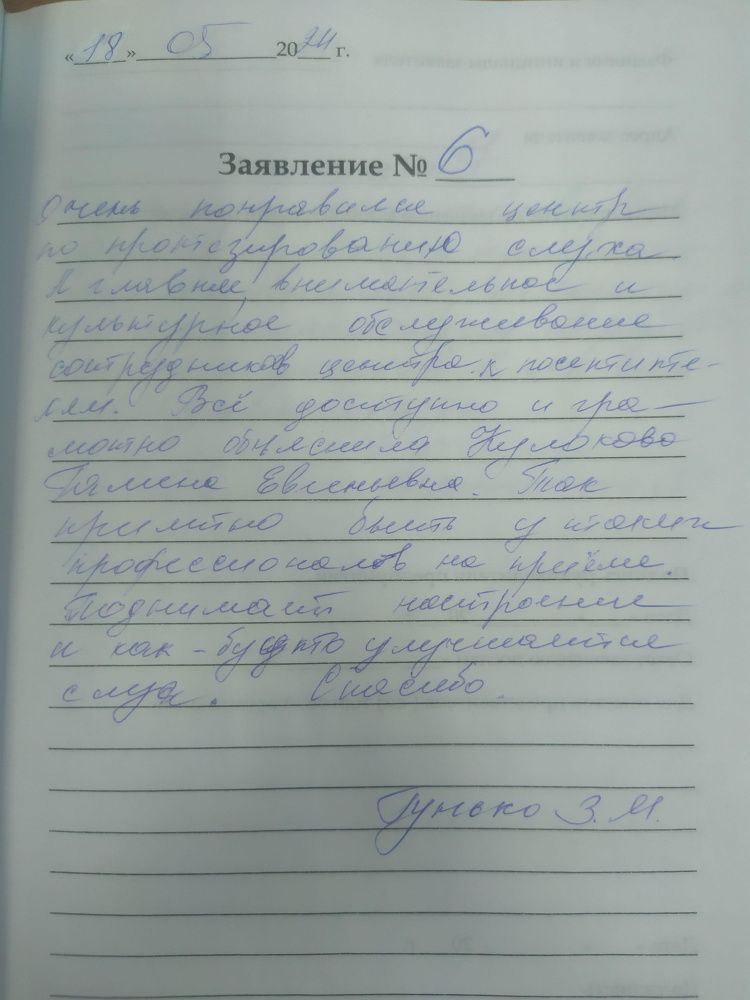 «18» 05 2024 г.
Заявление № 6
Очень понравился центр
по протезированию слуха.
А главное, внимательное и
культурное обслуживание
сотрудников центра к посетите-
лям. Всё доступно и гра-
мотно объяснила Кулакова
Евгеньевна. Так
приятно быть у таких
профессионалов на приёме.
Поднимает настроение
и как-будто улучшается
слух. Спасибо.
Гунько З.М.